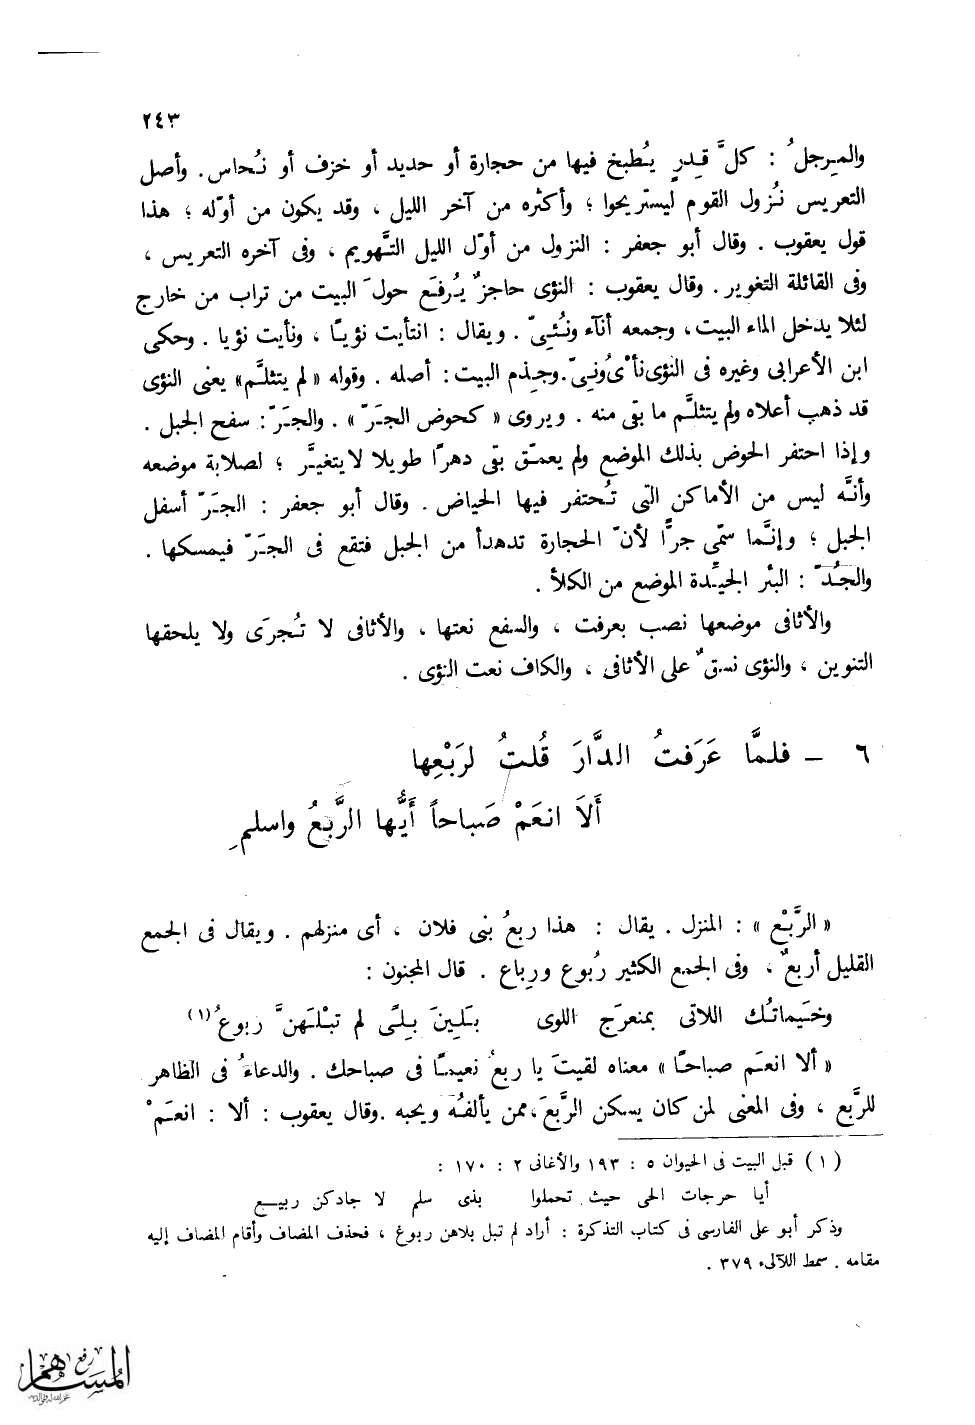 ٢٤٣
والمِرجلُ : كلَّ قِدرٍ يُطبخ فيها من حجارة أو حديد أو خزف أو نُحاس. وأصل
التعريس نُزول القوم ليستريحوا ؛ وأكثره من آخر الليل ، وقد يكون من أوّله ؛ هذا
قول يعقوب . وقال أبو جعفر : النزول من أوّل الليل التَّهويم ، وفى آخره التعريس ،
وفى القائلة التغوير . وقال يعقوب : النؤى حاجزٌ يُرفَع حولَ البيت من تراب من خارج
لئلا يدخل الماء البيت، وجمعه أنآء ونُئِىّ . ويقال : انتأيت نؤيًا ، ونأيت نؤيا . وحكى
ابن الأعرابى وغيره فى النؤى نأْى ونُىّ. وجِذم البيت : أصله . وقوله «لم يتثلَّم» يعنى النؤى
قد ذهب أعلاه ولم يتثلَّم ما بقى منه . ويروى « كحوض الجَرّ » . والجَرّ : سفح الجبل .
وإذا احتفر الحوض بذلك الموضع ولم يعمّق بقى دهرًا طويلا لا يتغيَّر ؛ لصلابة موضعه
وأنَّه ليس من الأماكن التى تُحتفر فيها الحياض . وقال أبو جعفر : الجَرّ أسفل
الجبل ؛ وإنَّما سمّى جرًّا لأنّ الحجارة تدهدأ من الجبل فتقع فى الجَرّ فيمسكها .
والجُدّ : البئر الجيِّدة الموضع من الكلأ .
والأثافى موضعها نصب بعرفت ، والسفع نعتها ، والأثافى لا تُجرَى ولا يلحقها
التنوين ، والنؤى نسقٌ على الأثافى ، والكاف نعت النؤى .
٦ – فلمَّا عَرَفتُ الدَّارَ قُلتُ لرَبْعِها
أَلاَ انعَمْ صَباحاً أَيُّها الرَّبعُ واسلمِ
« الرَّبْع » : المنزل . يقال : هذا ربعُ بنى فلان ، أى منزلهم . ويقال فى الجمع
القليل أربعٌ ، وفى الجمع الكثير رُبوع ورِباع . قال المجنون :
وخَيماتُك اللاتى بمنعرَج اللوى بَلِينَ بِلًى لم تبْلَهنَّ ربوعُ(١)
« ألا انعَم صباحًا » معناه لقيتَ يا ربعُ نعيمًا فى صباحك . والدعاءُ فى الظاهر
للرَّبع ، وفى المعنى لمن كان يسكن الرَّبعَ، ممن يألفُه ويحبه . وقال يعقوب : ألا : انعَمْ
(١) قبل البيت فى الحيوان ٥ : ١٩٣ والأغانى ٢ : ١٧٠ :
أيا حرجات الحى حيث تحملوا بذى سلم لا جادكن ربيع
وذكر أبو على الفارسى فى كتاب التذكرة : أراد لم تبل بلاهن ربوع ، فحذف المضاف وأقام المضاف إليه
مقامه . سمط اللآلىء ٣٧٩ .
رفع
المساهم